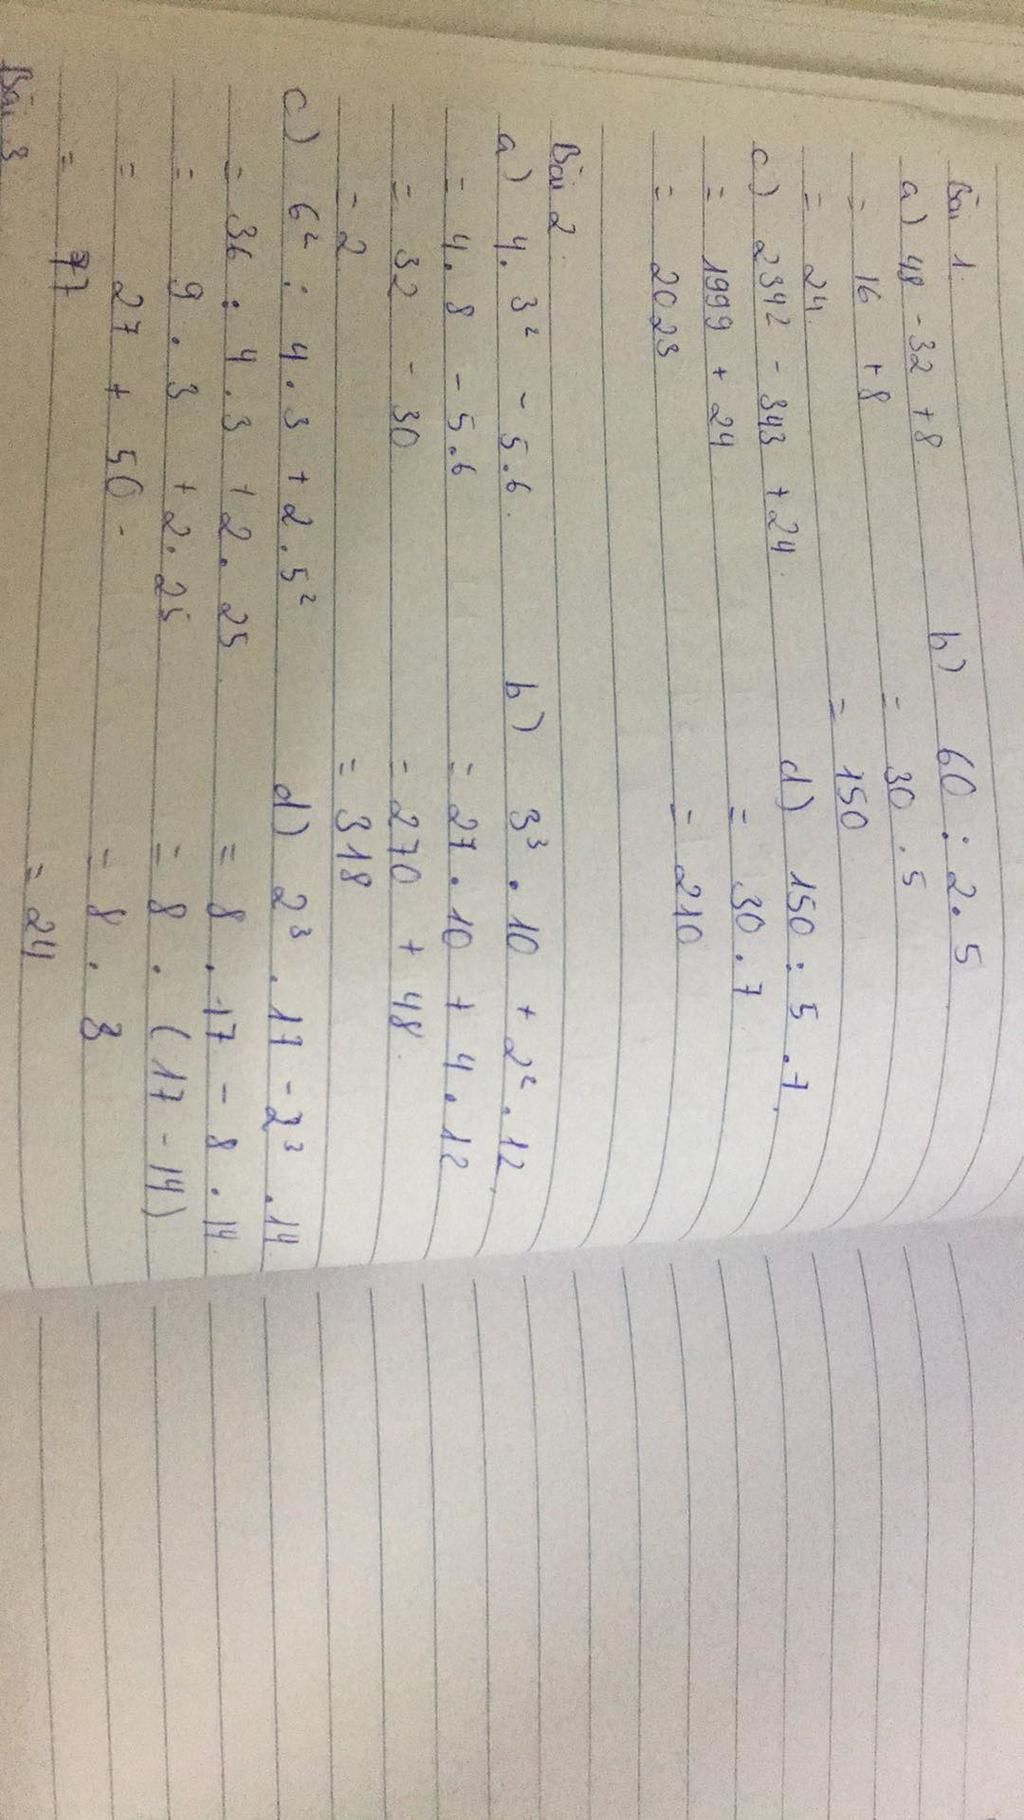 Bài 1.
a) 48 - 32 + 8
= 16 + 8
= 24.
b) 60 : 2 . 5
= 30 . 5
= 150
c) 2342 - 343 + 24.
= 1999 + 24
= 2023
d) 150 : 5 . 7.
= 30 . 7
= 210
Bài 2.
a) 4 . 3² - 5 . 6.
= 4 . 8 - 5 . 6
= 32 - 30
= 2
b) 3³ . 10 + 2² . 12.
= 27 . 10 + 4 . 12
= 270 + 48.
= 318
c) 6² : 4 . 3 + 2 . 5²
= 36 : 4 . 3 + 2 . 25
= 9 . 3 + 2 . 25
= 27 + 50.
= 77
d) 2³ . 17 - 2³ . 14
= 8 . 17 - 8 . 14
= 8 . (17 - 14)
= 8 . 3
= 24
Bài 3